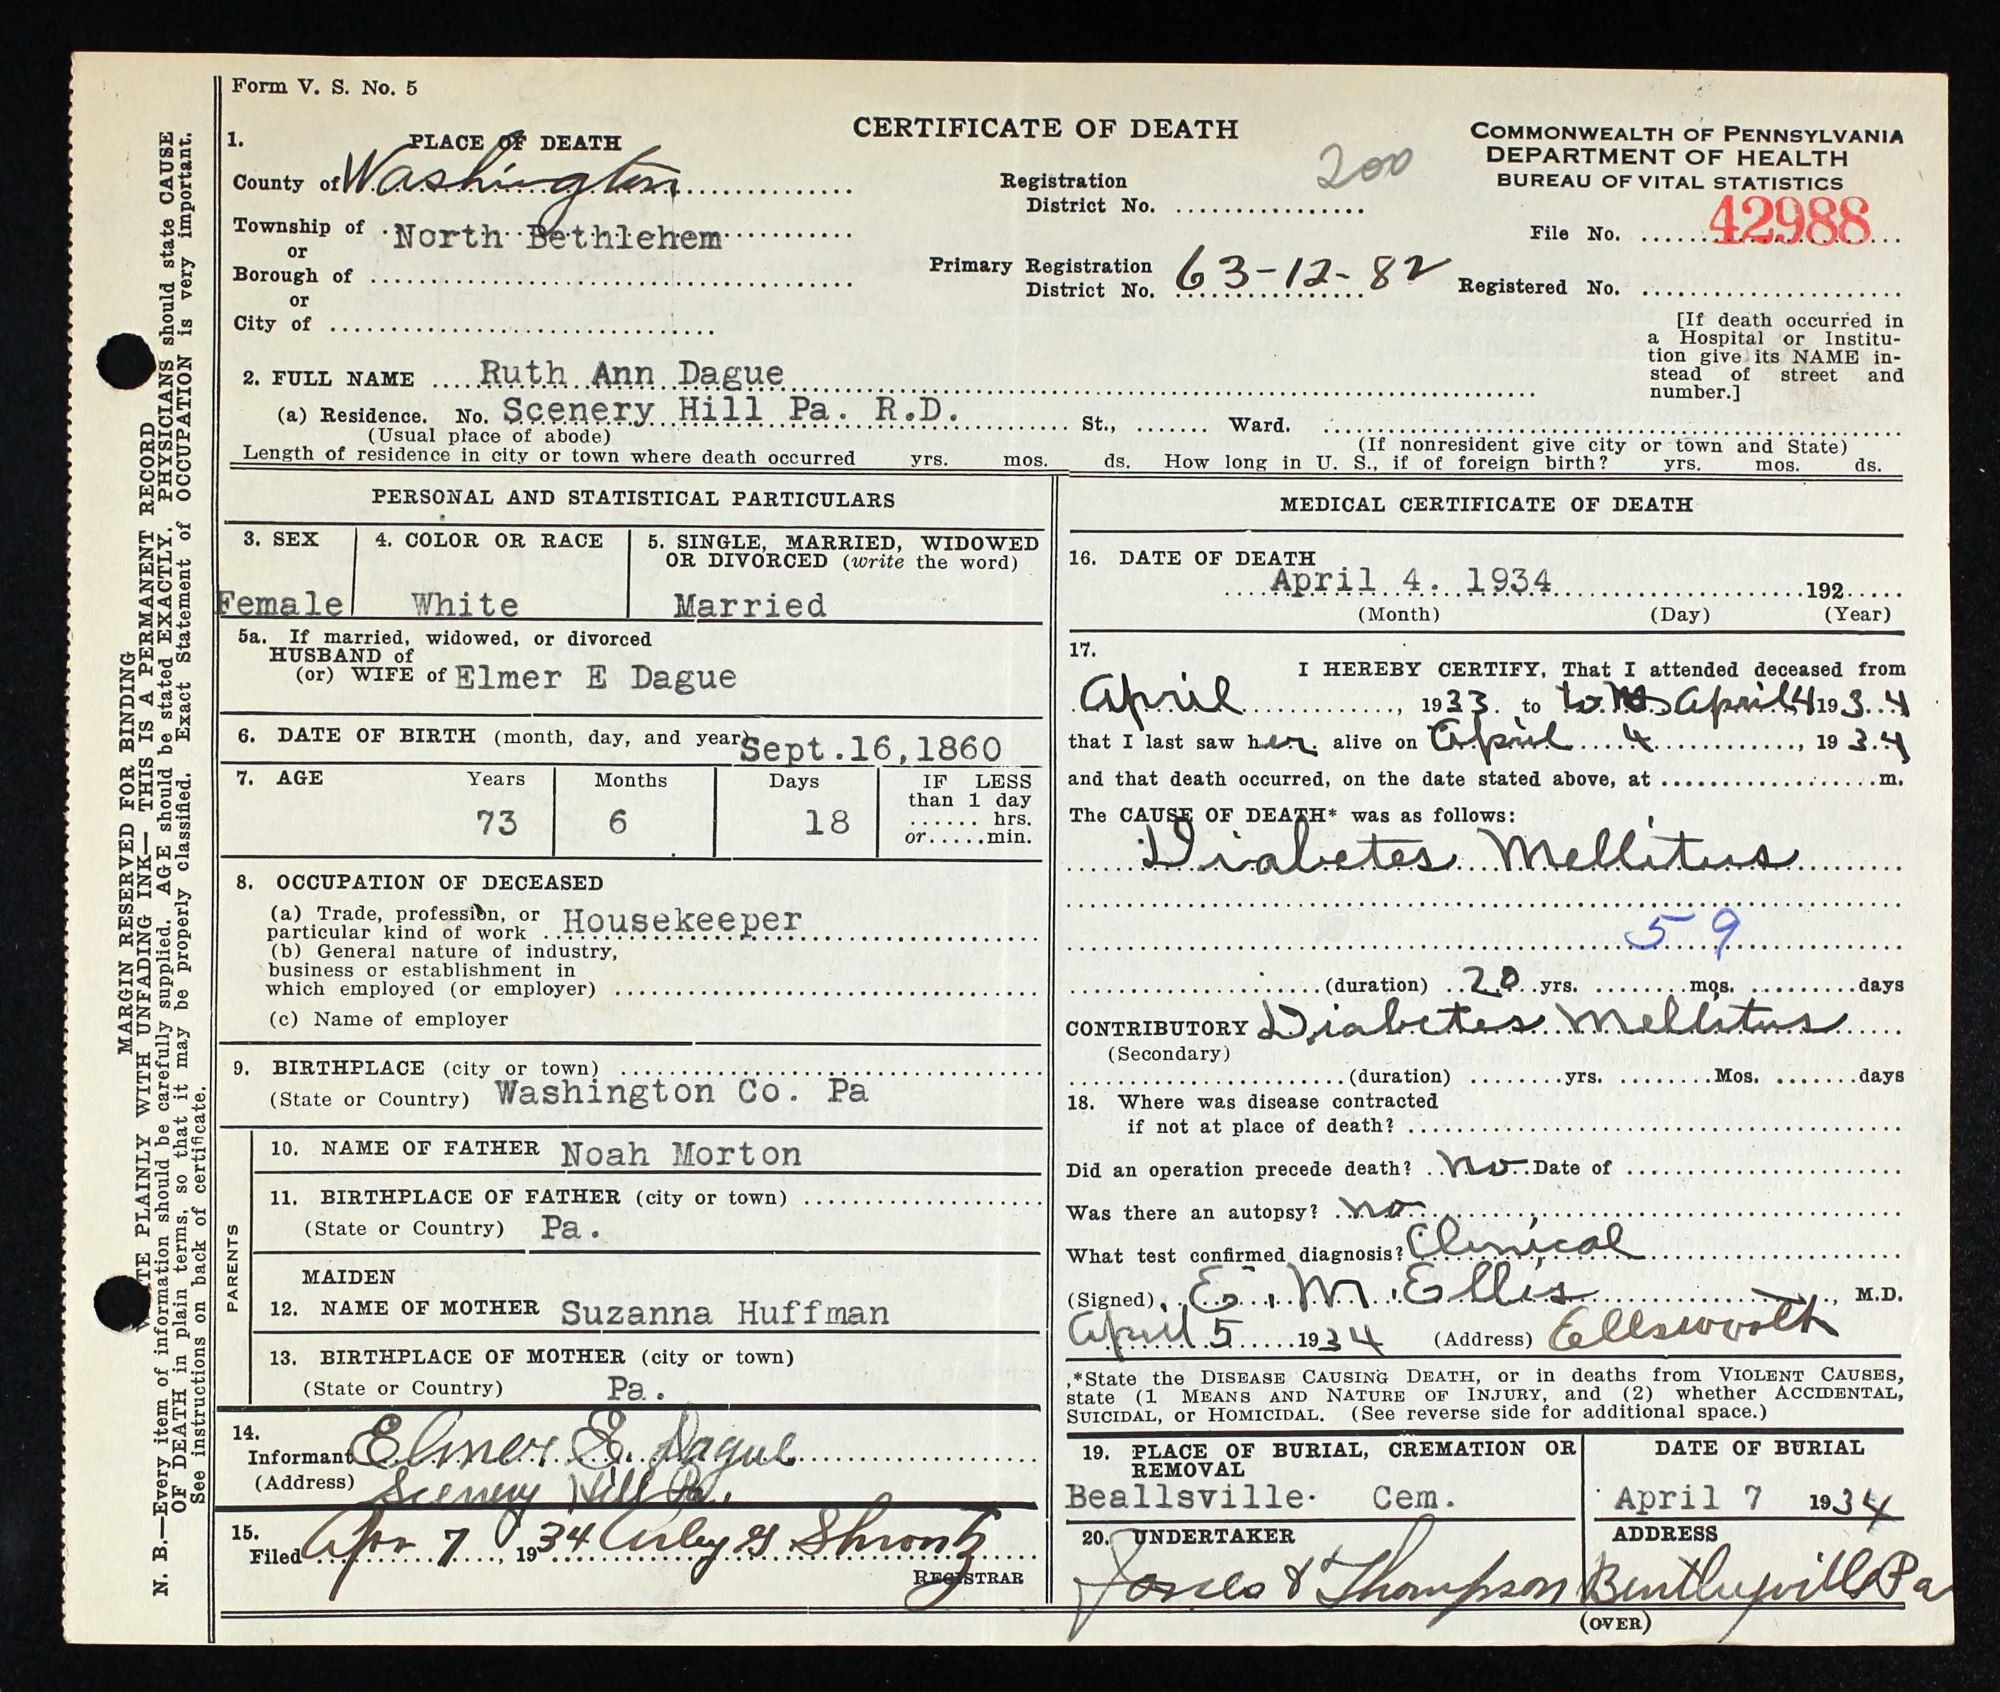 Form V. S. No. 5
CERTIFICATE OF DEATH
COMMONWEALTH OF PENNSYLVANIA
DEPARTMENT OF HEALTH
BUREAU OF VITAL STATISTICS
1. PLACE OF DEATH
County of Washington
Township of North Bethlehem
or
Borough of
or
City of
200
Registration
District No.
Primary Registration
District No. 63-12-82
File No. 42988
Registered No.
[If death occurred in
a Hospital or Institu-
tion give its NAME in-
stead of street and
number.]
2. FULL NAME Ruth Ann Dague
(a) Residence. No. Scenery Hill Pa. R.D. St., Ward.
(Usual place of abode) (If nonresident give city or town and State)
Length of residence in city or town where death occurred yrs. mos. ds. How long in U. S., if of foreign birth? yrs. mos. ds.
PERSONAL AND STATISTICAL PARTICULARS
3. SEX 4. COLOR OR RACE 5. SINGLE, MARRIED, WIDOWED
OR DIVORCED (write the word)
Female White Married
5a. If married, widowed, or divorced
HUSBAND of
(or) WIFE of Elmer E Dague
6. DATE OF BIRTH (month, day, and year) Sept.16,1860
7. AGE Years Months Days IF LESS
than 1 day
73 6 18 hrs.
or min.
8. OCCUPATION OF DECEASED
(a) Trade, profession, or
particular kind of work Housekeeper
(b) General nature of industry,
business or establishment in
which employed (or employer)
(c) Name of employer
9. BIRTHPLACE (city or town)
(State or Country) Washington Co. Pa
PARENTS
10. NAME OF FATHER Noah Morton
11. BIRTHPLACE OF FATHER (city or town)
(State or Country) Pa.
MAIDEN
12. NAME OF MOTHER Suzanna Huffman
13. BIRTHPLACE OF MOTHER (city or town)
(State or Country) Pa.
14.
Informant Elmer E. Dague
(Address) Scenery Hill Pa.
15.
Filed Apr 7, 1934 G Shrontz
REGISTRAR
MEDICAL CERTIFICATE OF DEATH
16. DATE OF DEATH
April 4. 1934 192
(Month) (Day) (Year)
17.
I HEREBY CERTIFY, That I attended deceased from
April, 1933 to to April 4 1934
that I last saw her alive on April 4, 1934
and that death occurred, on the date stated above, at m.
The CAUSE OF DEATH* was as follows:
Diabetes Mellitus
59
(duration) 20 yrs. mos. days
CONTRIBUTORY Diabetes Mellitus
(Secondary)
(duration) yrs. Mos. days
18. Where was disease contracted
if not at place of death?
Did an operation precede death? no Date of
Was there an autopsy? no
What test confirmed diagnosis? Clinical
(Signed), E. M. Ellis, M.D.
April 5 1934 (Address) Ellsworth
*State the DISEASE CAUSING DEATH, or in deaths from VIOLENT CAUSES,
state (1 MEANS AND NATURE OF INJURY, and (2) whether ACCIDENTAL,
SUICIDAL, or HOMICIDAL. (See reverse side for additional space.)
19. PLACE OF BURIAL, CREMATION OR
REMOVAL
DATE OF BURIAL
Beallsville Cem. April 7 1934
20. UNDERTAKER ADDRESS
& Thompson Bentleyville Pa
(OVER)
MARGIN RESERVED FOR BINDING
PLAINLY WITH UNFADING INK—THIS IS A PERMANENT RECORD
N. B.—Every item of information should be carefully supplied. AGE should be stated EXACTLY. PHYSICIANS should state CAUSE
OF DEATH in plain terms, so that it may be properly classified. Exact Statement of OCCUPATION is very important.
See instructions on back of certificate.